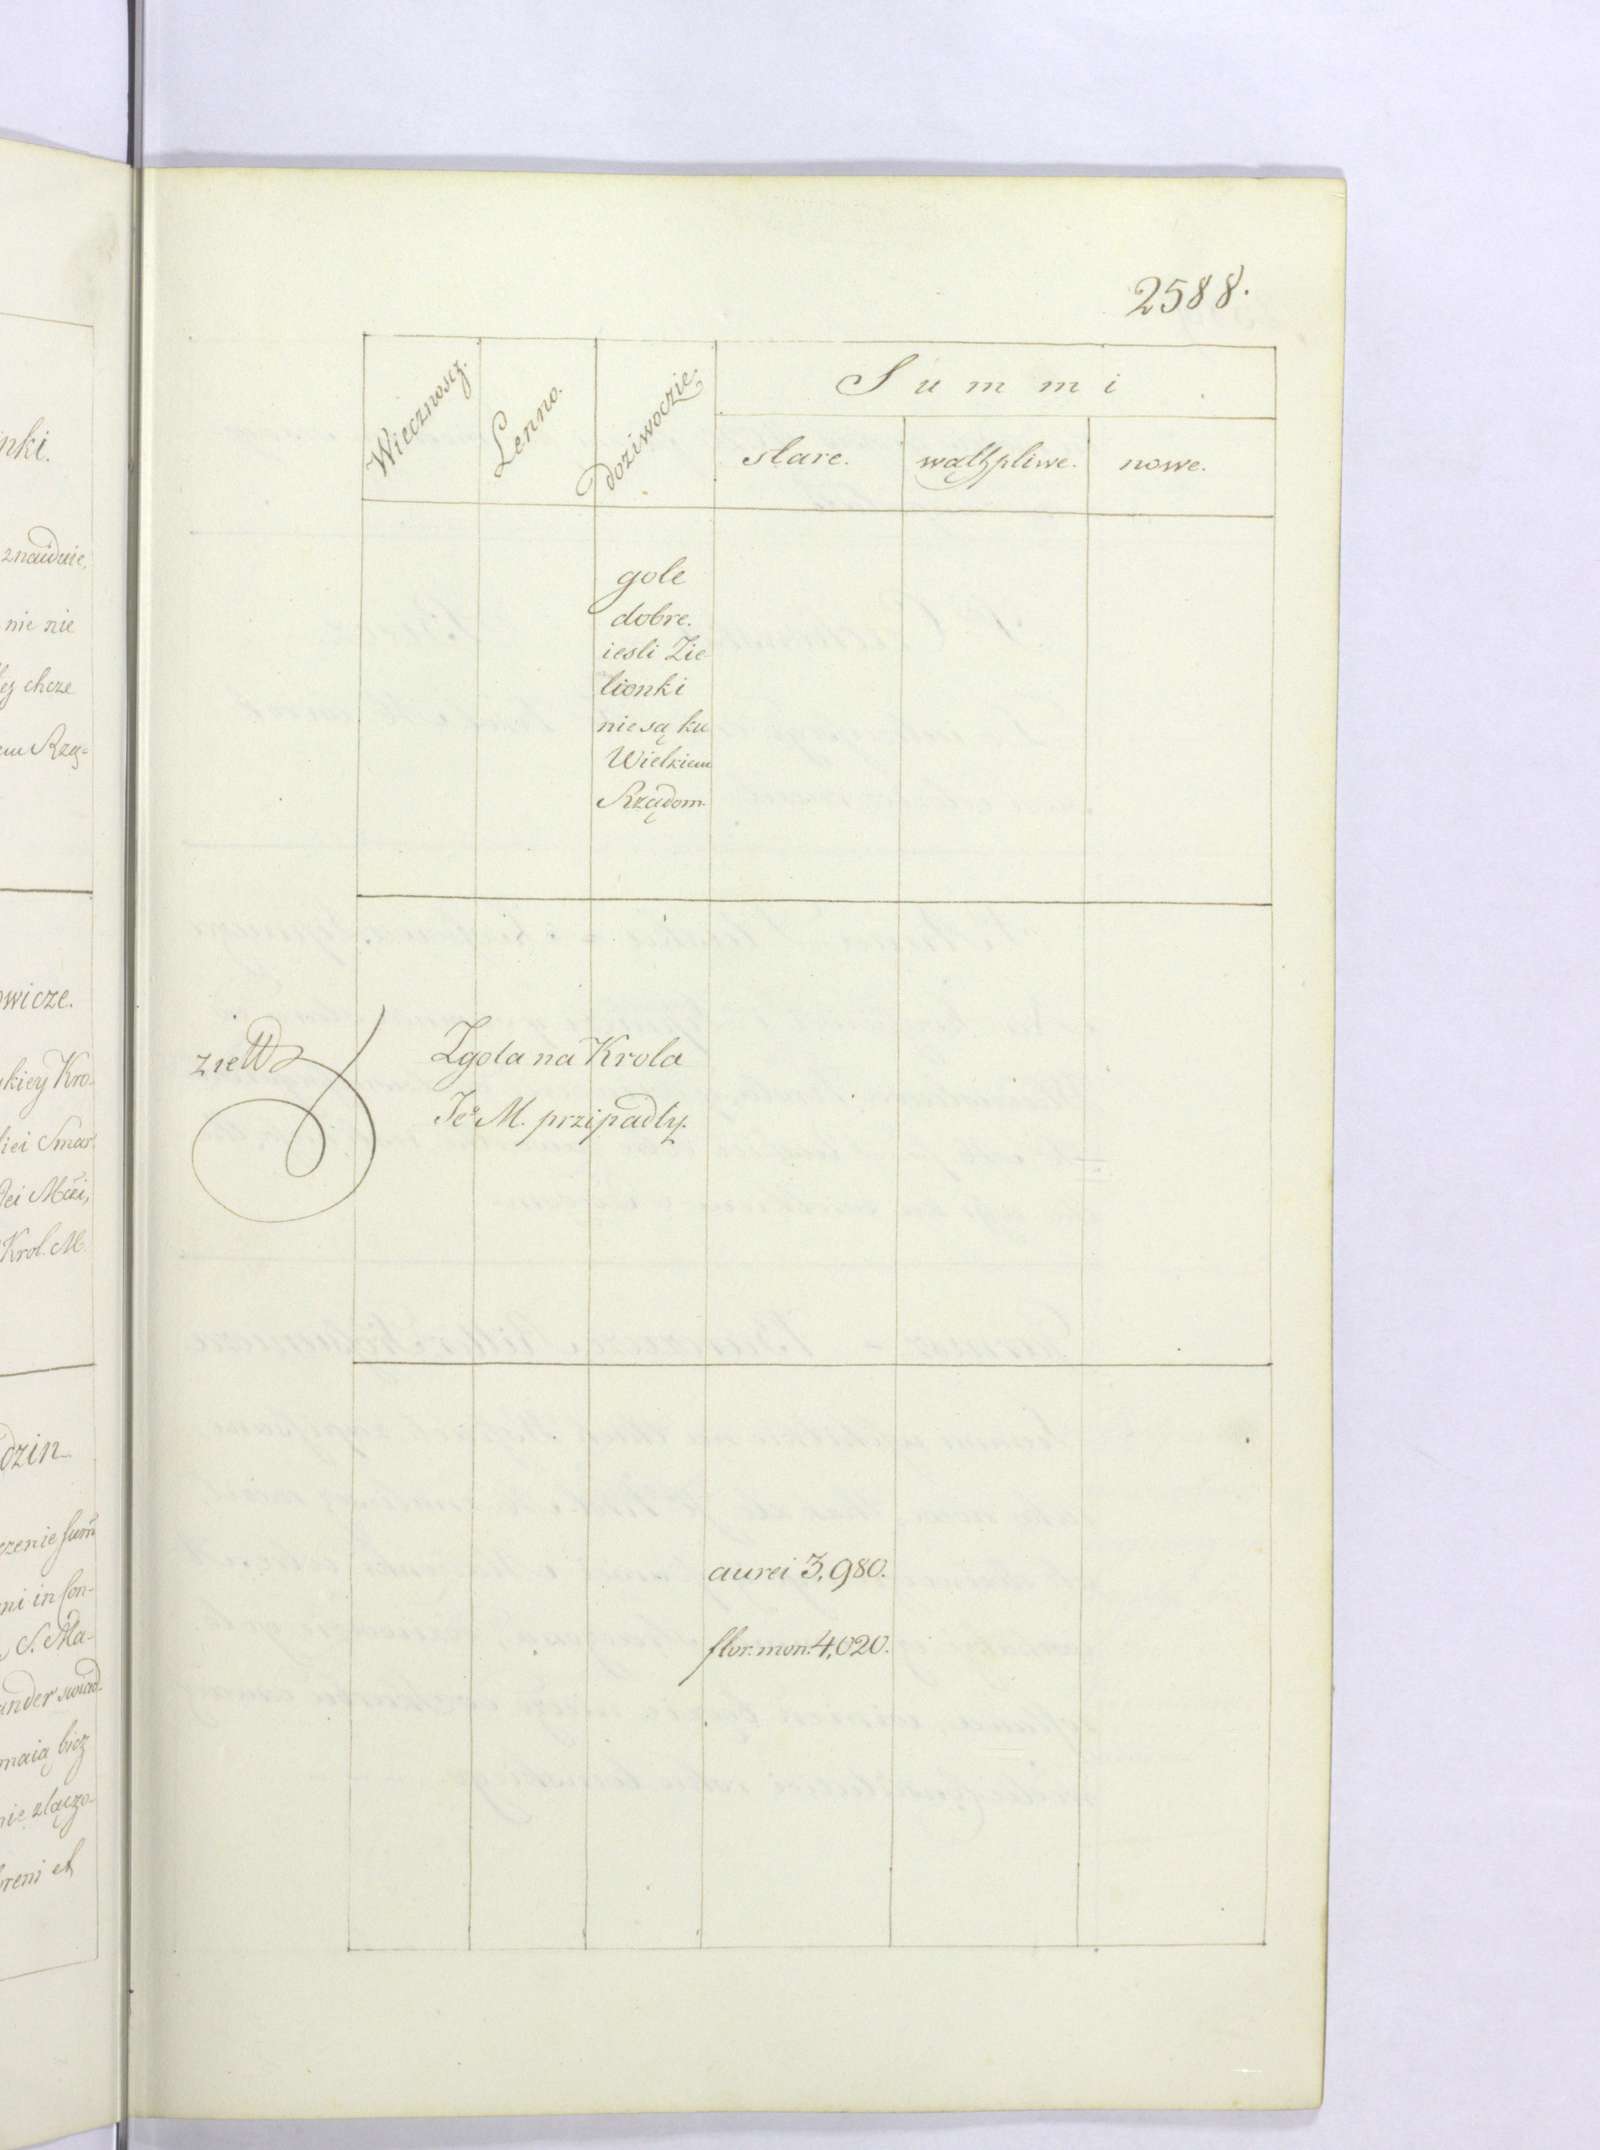 2588.
Wiecznoscz.
Lenno.
Doziwoczie.
Summi
stare.
nowe.
gole
dobre.
iesli Zie
lionki
nie są ku
Wielkiem
Rządom.
Zgola na Krola
Je° M. przipadly.
aurei 3,980.
flor. mon. 4,020.
nki.
znaiduie,
nie nie
ey chcze
em Rzą=
wicze.
kiey Kro-
iei Smar
Krol. M.
dzin
czenie sum̃
ni in con-
S. Ma-
ander swiad-
maią bicz
nie zlączo-